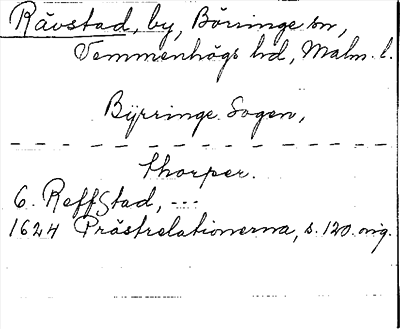 Rävstad, by, Börringe sn,
Vemmenhögs hd, Malm. l.
Byrringe Sogen,
thorper.
6. Reffstad, ---
1624 Prästrelationerna, s. 120. orig.